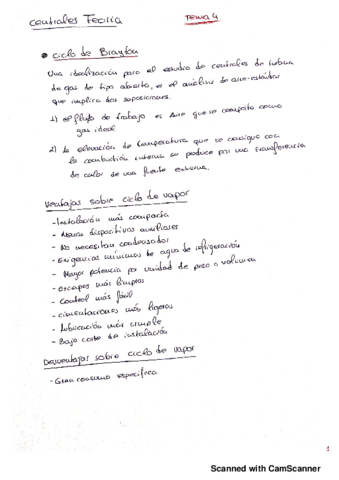 Centrales Teoría
Tema 4
• Ciclo de Brayton
Una idealización para el estudio de centrales de turbina
de gas de tipo abierto, es el análisis de aire-estándar
que implica dos suposiciones.
1) el flujo de trabajo es aire que se comporta como
gas ideal
2) la elevación de temperatura que se consigue con
la combustión interna se produce por una transferencia
de calor de una fuente externa.
Ventajas sobre ciclo de vapor
- Instalación más compacta
- Menos dispositivos auxiliares
- No necesitan condensador
- Exigencias mínimas de agua de refrigeración
- Mayor potencia por unidad de peso o volumen
- escapes más limpios
- Control más fácil
- cimentaciones más ligeras
- Lubricación más simple
- Bajo coste de instalación
Desventajas sobre ciclo de vapor
- Gran consumo específico
1
Scanned with CamScanner